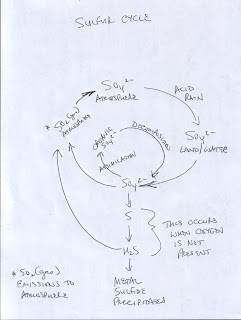 SULFUR CYCLE
SO4 2-
ATMOSPHERE
ACID
RAIN
* SO2(gas)
EMISSIONS
SO4 2-
LAND/WATER
ORGANIC
SO4 2-
DECOMPOSITION
ASSIMILATION
SO4 2-
S
H2S
THIS OCCURS
WHEN OXYGEN
IS NOT
PRESENT
METAL
SULFIDE
PRECIPITATES
* SO2(gas)
EMISSIONS TO
ATMOSPHERE